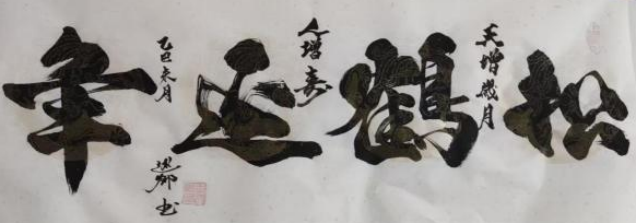 松
天增歲月
鶴
人增寿
延
年
乙巳
月
书